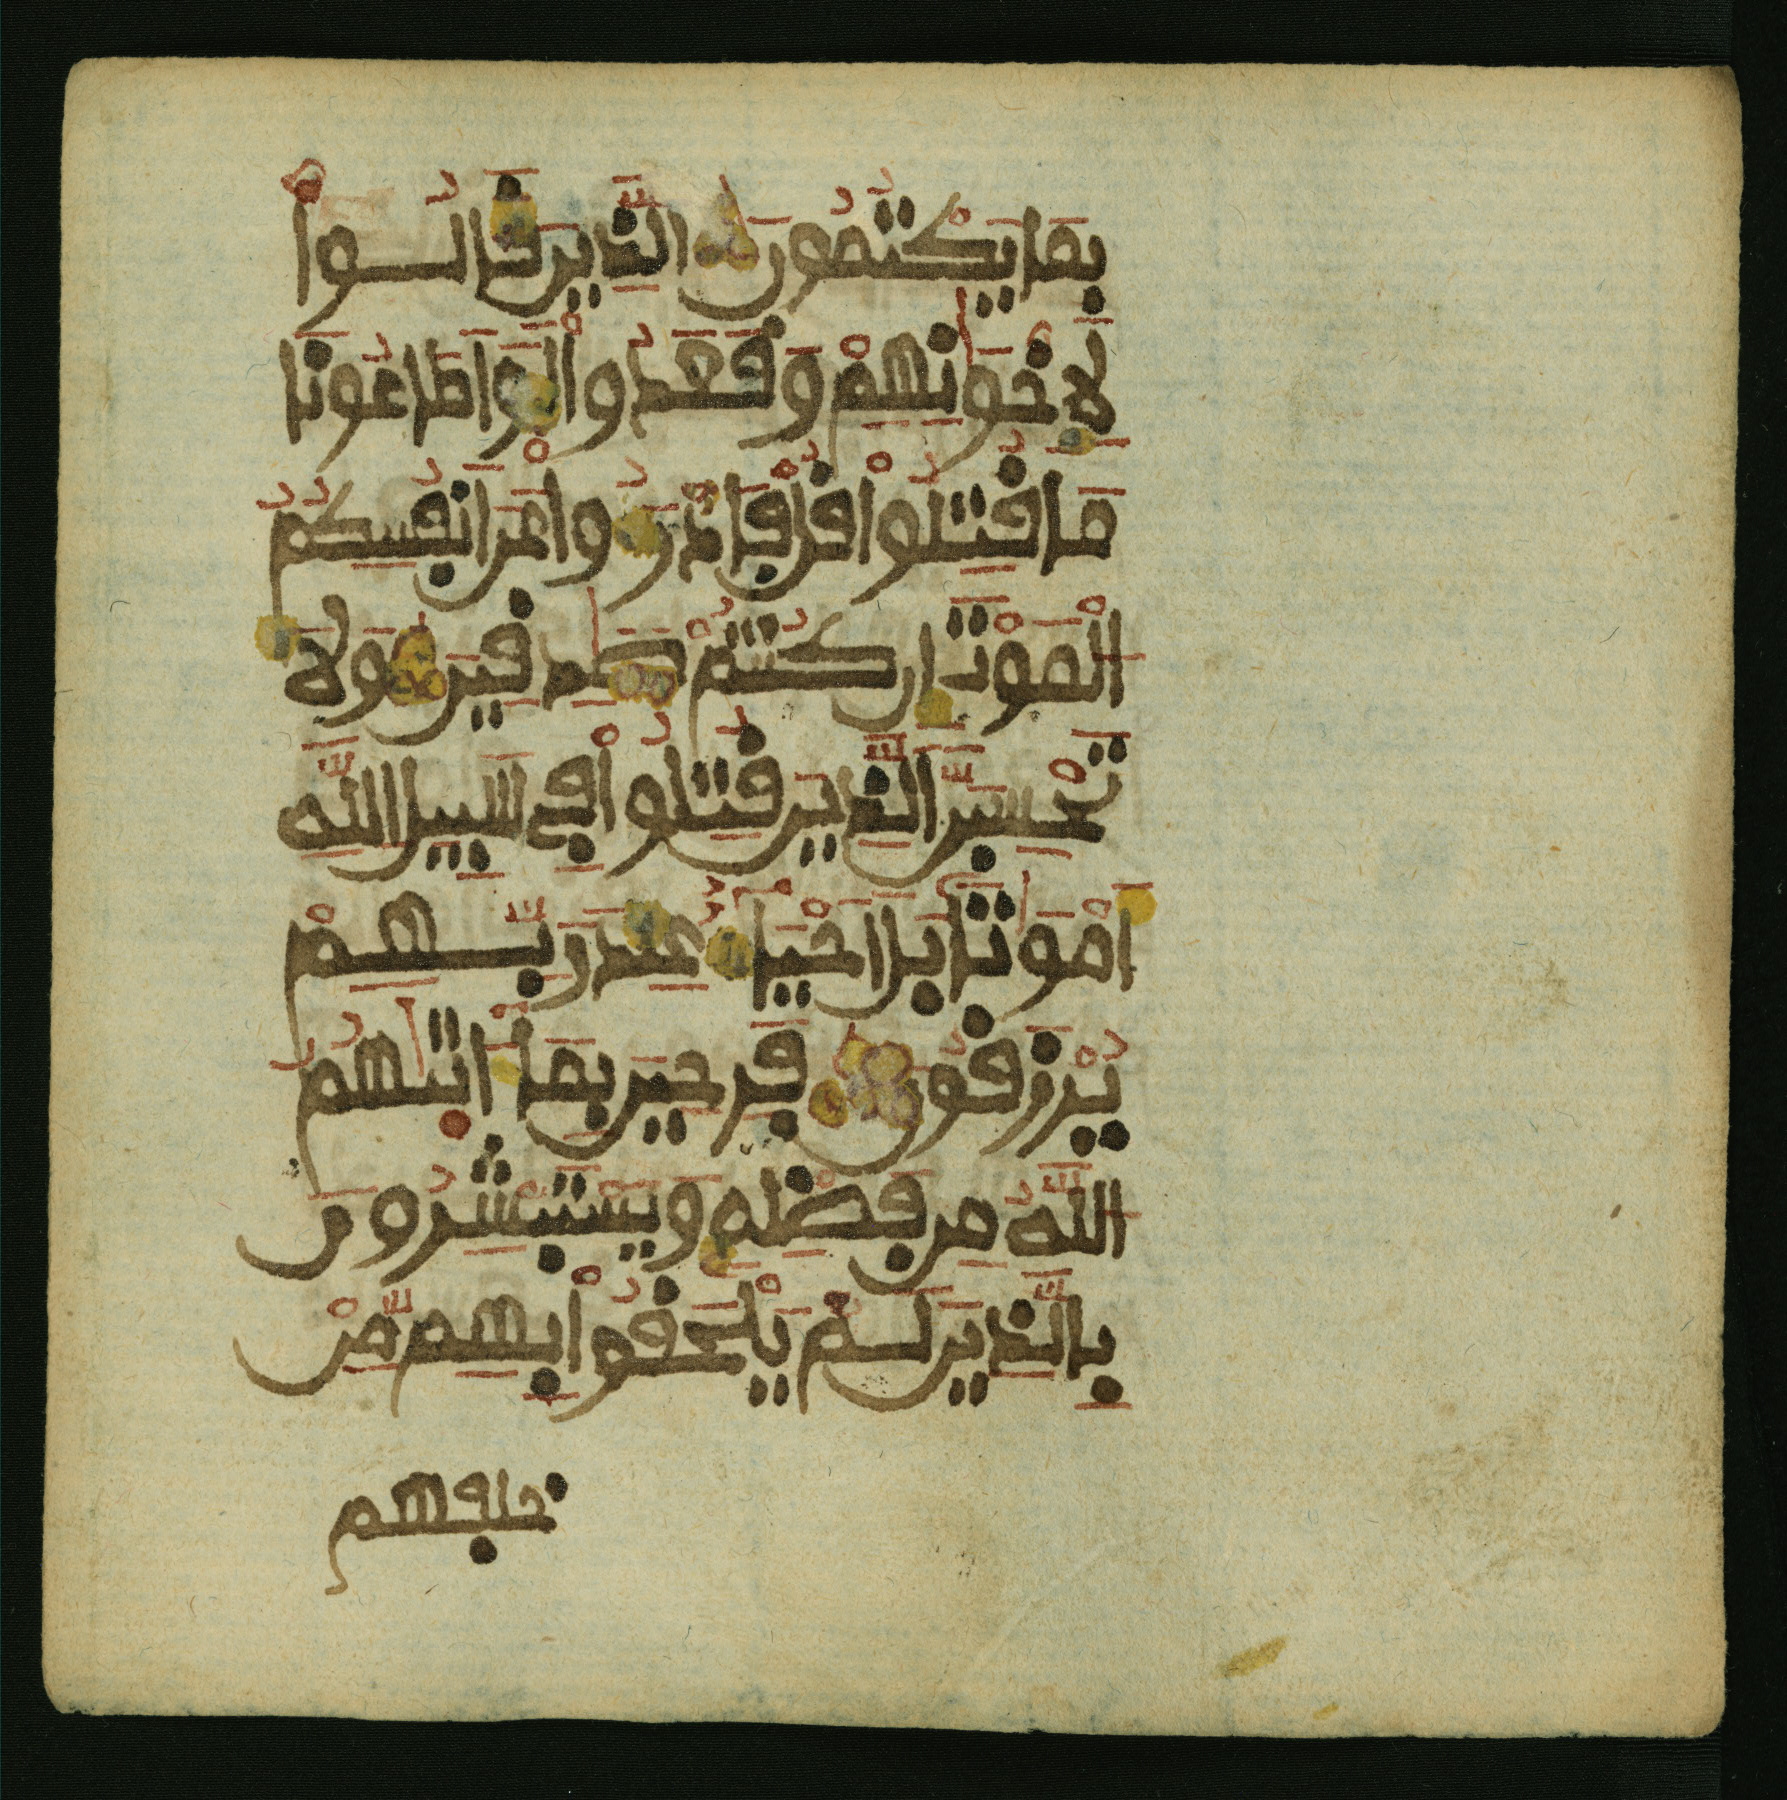 بِمَا يَكْتُمُونَ الَّذِينَ قَالُواْ
لِإِخْوَانِهِمْ وَقَعَدُواْ لَوْ أَطَاعُونَا
مَا قُتِلُواْ قُلْ فَادْرَءُواْ عَنَ اَنفُسِكُمُ
الْمَوْتَ إِن كُنتُمْ صَادِقِينَ وَلَا
تَحْسِبَنَّ الَّذِينَ قُتِلُواْ فِي سَبِيلِ اللَّهِ
أَمْوَاتاً بَلَ اَحْيَاءٌ عِندَ رَبِّهِمْ
يُرْزَقُونَ فَرِحِينَ بِمَا ءَاتَاهُمُ
اللَّهُ مِن فَضْلِهِ وَيَسْتَبْشِرُونَ
بِالَّذِينَ لَمْ يَلْحَقُواْ بِهِم مِّنْ
خلفهم